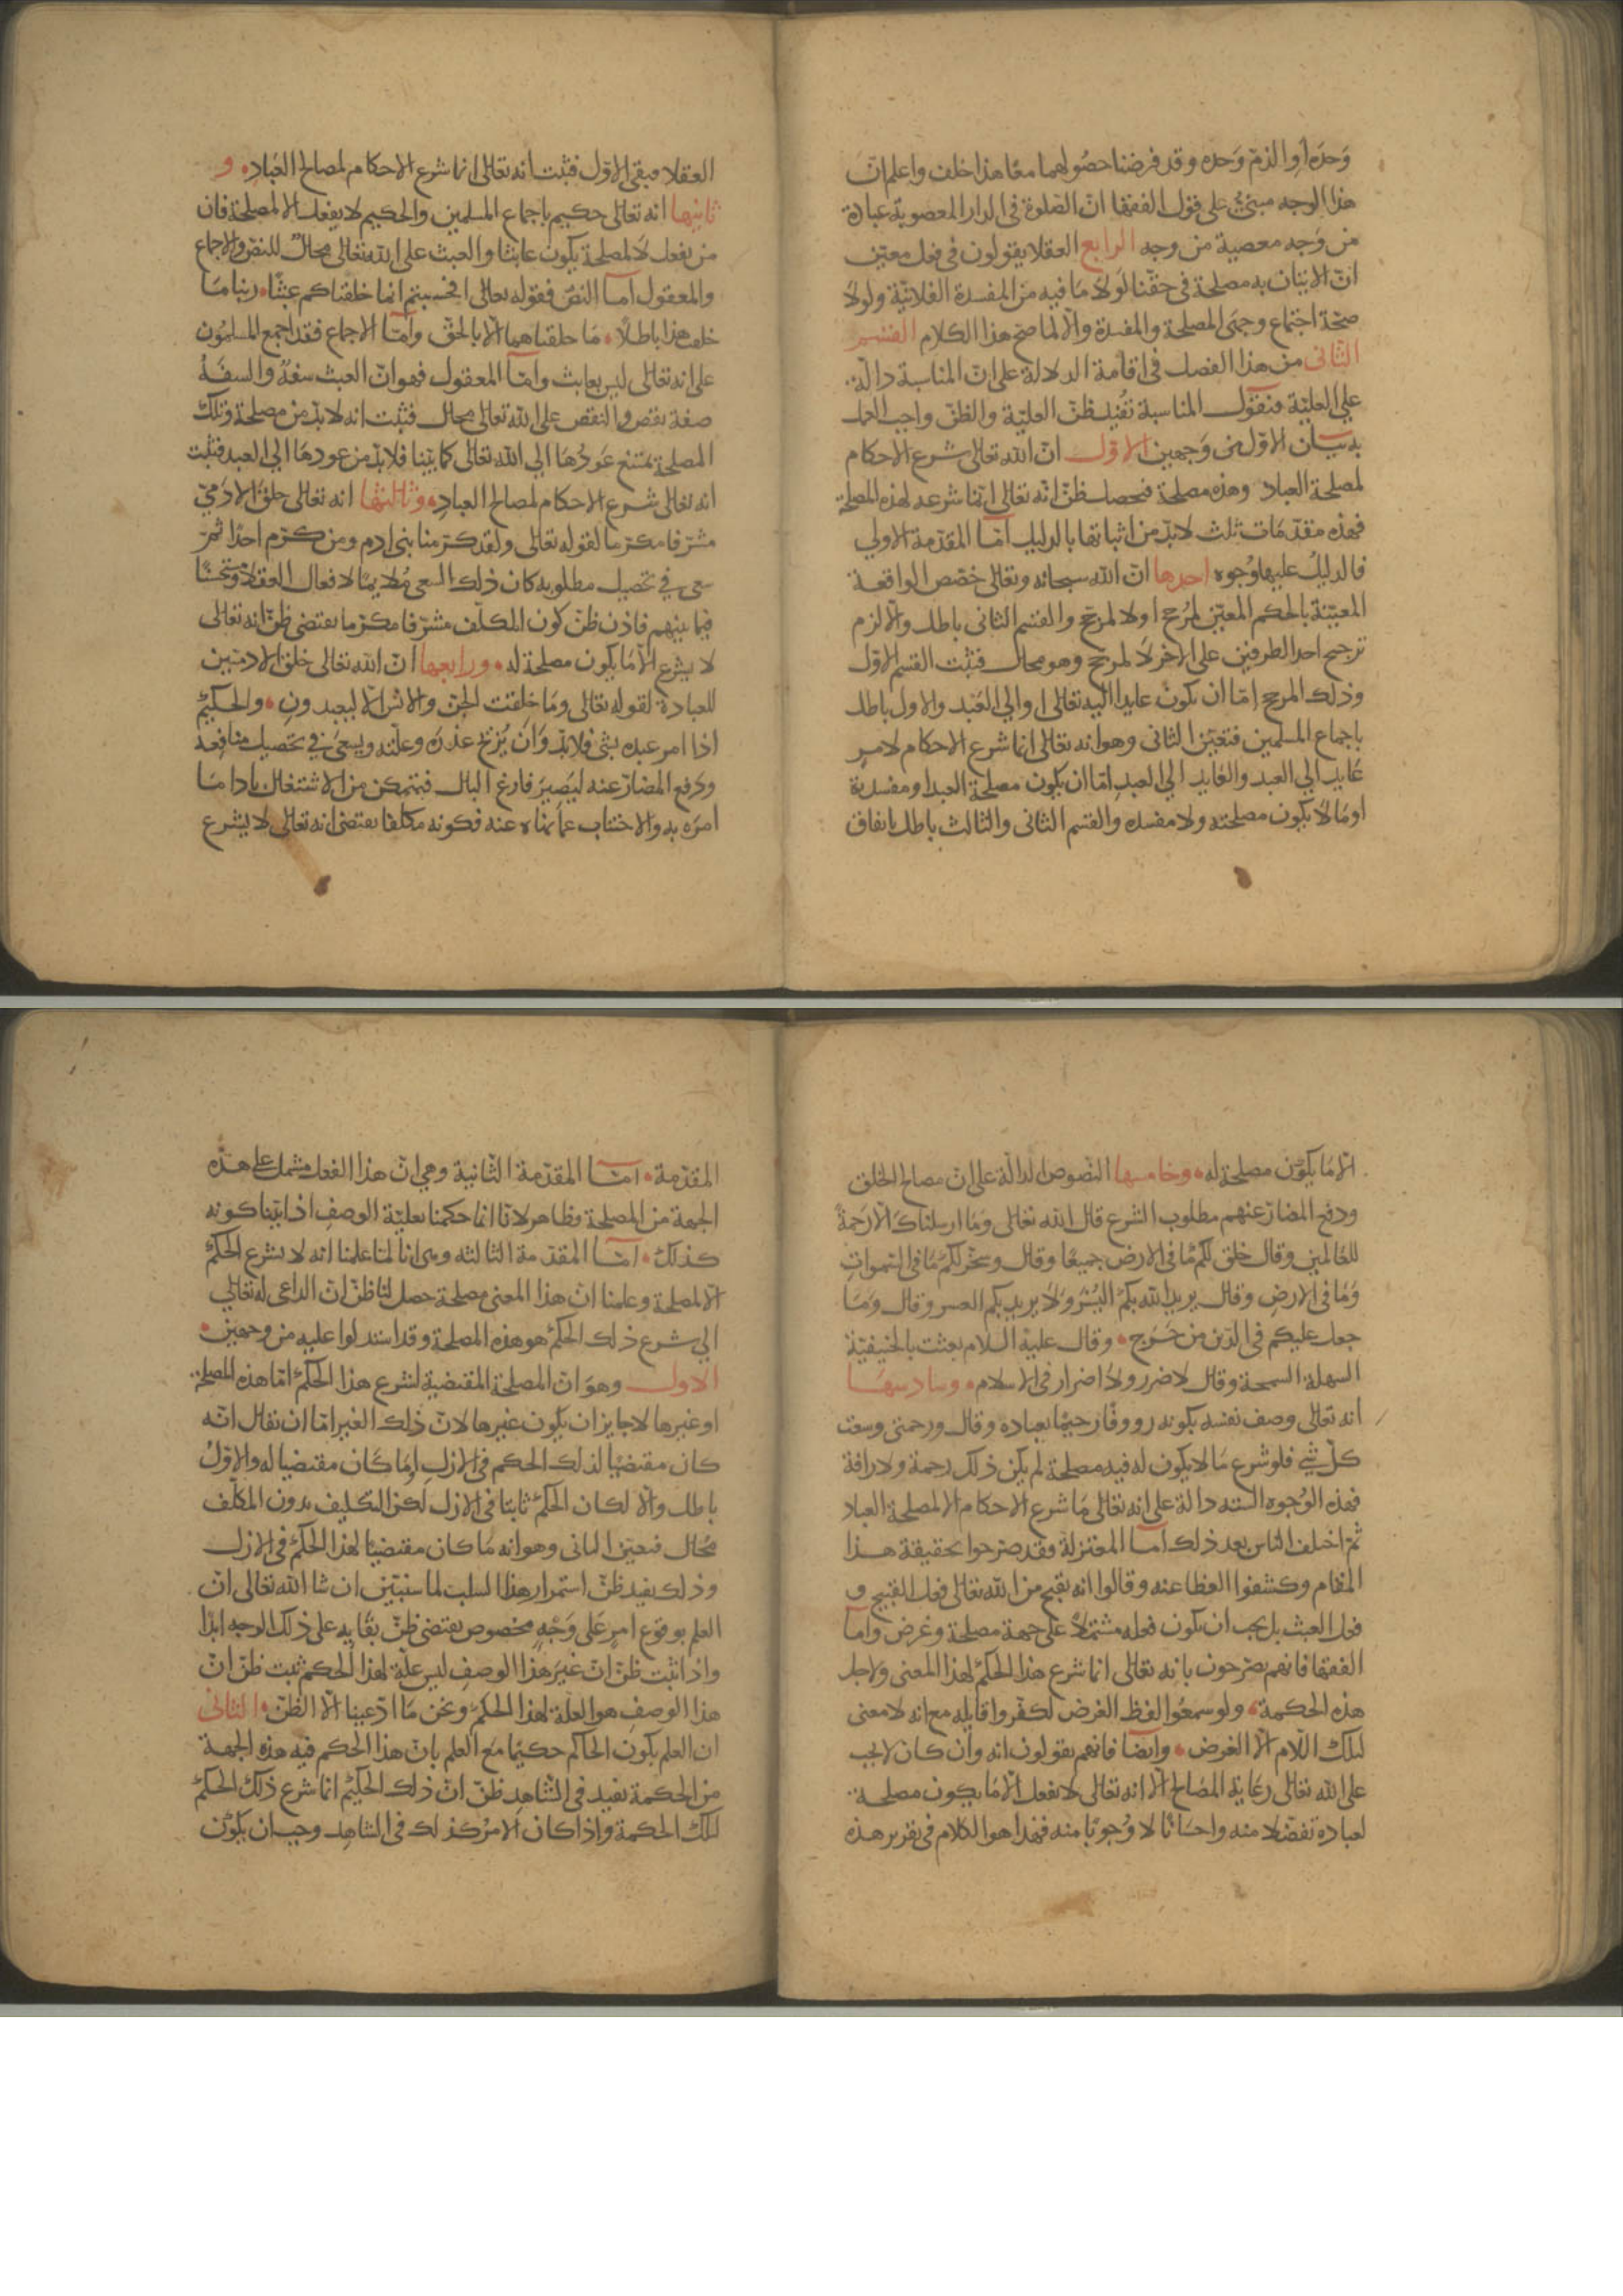 وَحدَه او الذمّ وَحده وقد فرضنا حصُولهما معًا هذا خلف واعلم انّ
هذا الوجه مبنىٌّ على قول الفقها انّ الصّلوة فى الدار المغصوبة عبادة
من وَجه معصية من وجه الرابع العقلا يقولون فى فعل معيّن
انّ الاتيان به مصلحة فى حقّنا لَولا مَا فيه من المفسدة الفلانيّة ولولا
صحّة اجتماع وجهى المصلحة والمفسدة والّا لما صحّ هذا الكلام القسم
الثانى من هذا الفصل فى اقامة الدلالة على انّ المناسبة دالّة
على العليّة فنقول المناسبة تُفيد ظنّ العليّة والظنّ واجب العمل
به بيان الاوّل من وَجهين الاوّل انّ الله تعالى شرع الاحكام
لمصلحة العباد وهذه مصلحة فيحصل ظنّ انّه تعالى انّما شرعه لهذه المصلحة
فهذه مقدّمَات ثلث لابدّ من اثباتها بالدليل امّا المقدّمة الاولى
فالدليلُ عليها وُجوه احدها انّ الله سبحانه وتعالى خصّص الواقعة
المعيّنة بالحكم المعيّن لمُرجّح او لا لمرجّح والقسم الثانى باطل والّا لزم
ترجيح احد الطرفين على الاخر لا لمرجّح وهو محال فثبت القسم الاوّل
وذلك المرجح إمّا ان يكون عايدا اليه تعالى او الى العَبد والاول باطل
باجماع المسلمين فتعيّن الثانى وهو انه تعالى انما شرع الاحكام لامرٍ
عَايد الى العبد والعَايد الى العبد امّا ان يكون مصلحة العبد او مفسدته
او مَا لا يكون مصلحته ولا مفسدته والقسم الثانى والثالث باطل باتفاق
العقلا فبقى الاوّل فثبت انه تعالى انما شرع الاحكام لمصالح العبَاد و
ثانيها انه تعالى حكيم باجماع المسلمين والحكيم لا يفعل الا لمصلحة فان
من يفعل لا لمصلحة يكون عابثا والعبث على الله تعالى محالٌ للنصّ والاجماع
والمعقول امّا النصّ فقوله تعالى افحسبتم انما خلقناكم عبثًا ربنا مَا
خلقت هذا باطلا مَا خلقناهما الّا بالحقّ وامّا الاجماع فقد اجمع المسلمُون
على انه تعالى ليس بعابث وامّا المعقول فهو انّ العبث سفهٌ والسفَهُ
صفة نقص والنقص على الله تعالى محال فثبت انه لا بدّ من مصلحة وتلك
المصلحة يمتنع عَودُهَا الى الله تعالى كما بيّنا فلا بدّ من عودهَا الى العبد فثبت
انه تعالى شرع الاحكام لمصالح العباد وثالثها انه تعالى خلق الادمىّ
مشرّفا مكرّما لقوله تعالى ولقد كرّمنا بنى ادم ومن كرّم احدًا ثمّ
سعى فى تحصيل مطلوبه كان ذلك السعى مُلايمًا لافعال العقلا مستحسنًا
فيما بينهم فاذن ظنّ كون المكلّف مشرّفا مكرّما يقتضى ظنّ انه تعالى
لا يشرع الّا مَا يكون مصلحة له ورابعها انّ الله تعالى خلق الادميّين
للعبادة لقوله تعالى ومَا خلقت الجنّ والانس الّا ليعبدون والحكيمُ
اذا امر عبده بشى فلابدّ وَان يُزيح عذرَه وعلّته ويسعَى فى تحصيل منافعه
ودفع المضارّ عنه ليَصِيرَ فارغ البال فيتمكن من الاشتغال بادا مَا
امرَه به والاجتناب عمّا نهَاه عنه فكونه مكلفا يقتضى انه تعالى لا يشرع
الّا مَا يكُون مصلحة له وخامسها النصّوص الدالّة على انّ مصالح الخلق
ودفع المضارّ عنهم مطلوب الشرع قال الله تعالى وَمَا ارسلناكَ الّا رَحمةً
للعَالمين وقال خلق لكم مَا فى الارض جميعًا وقال وسخّر لكم مَا فى السّمواتِ
وَمَا فى الارضِ وقال يريد الله بكمُ اليُسْرَ وَلَا يريد بكم العسر وقال ومَا
جعل عليكم فى الدّين من حَرَج وقال عليه السلام بعثت بالحنيفيّة
السهلة السمحة وقال لا ضرر ولا اضرار فى الاسلام وسادسهَا
انه تعالى وصف نفسه بكونه رووفًا رحيمًا بعباده وقال ورحمتى وسعت
كلّ شى فلو شرع مَا لا يكون له فيه مصلحة لم يكن ذلك رحمة ولا رافة
فهذه الوُجوه الستّه دالة على انه تعالى مَا شرع الاحكام الا لمصلحة العباد
ثمّ اختلف الناس بعد ذلك امّا المعتزلة فقد صرّحوا بحقيقة هذا
المقام وكشفوا الغطا عنه وقالوا انه يقبح من الله تعالى فعل القبيح و
فعل العبث بل يجب ان يكون فعله مشتملا على جهة مصلحة وغرض وامّا
الفقها فانهم يصرّحون بانه تعالى انما شرع هذا الحكمَ لهذا المعنى ولاجل
هذه الحكمة ولو سمعُوا لفظ الغرض لكفّروا قايله مع انه لا معنى
لتلك اللّام الّا الغرض وايضًا فانهم يقولون انه وان كان لا يجب
على الله تعالى رعَاية المصَالح الّا انه تعالى لا يفعل الّا مَا يكون مصلحة
لعباده تفضّلا منه واحسَانًا لا وُجوبًا منه فهذا هو الكلام فى تقرير هذه
المقدّمة امّا المقدّمة الثّانية وهى انّ هذا الفعل مشتمل على هذه
الجهة من المصلحة فظاهر لانّا انما حكمنا بعليّة الوصفِ اذا بيّنا كونه
كذلك امّا المقدّمة الثالثه وهى انا لمّا علمنا انه لا يشرع الحكم
الّا لمصلحة وعلمنا انّ هذا المعنى مصلحة حصل لنا ظنّ انّ الداعى له تعالى
الى شرع ذلك الحكم هو هذه المصلحة وقد استدلوا عليه من وجهين
الاول وهو انّ المصلحة المقتضية لشرع هذا الحكم امّا هذه المصلحة
او غيرها لا جايز ان يكون غيرها لانّ ذلك الغير امّا ان يقال انّه
كان مقتضيًا لذلك الحكم فى الازل او مَا كَان مقتضيا له والاوّلُ
باطل والّا لكان الحكمُ ثابتا فى الازل لكن التكليف بدون المكلّف
محُال فتعيّن الثانى وهو انه مَا كان مقتضيًا لهذا الحكم فى الازل
وذلك يفيد ظنّ استمرار هذا السلب لما سنبيّن ان شا الله تعالى انّ
العلم بوقوع امرٍ عَلى وَجْهٍ مخصوص يقتضى ظنّ بقَايه على ذلك الوجه ابدًا
واذا ثبت ظنّ انّ غيرَ هذا الوصفِ ليس علّة لهذا الحكم ثبت ظنّ انّ
هذا الوصفِ هو العلّة لهذا الحكم ونحن مَا ادّعينا الّا الظنّ والثانى
ان العلم بكون الحاكم حكيمًا مع العلم بانّ هذا الحكم فيه هذه الجهة
من الحكمة يفيد فى الشّاهد ظنّ انّ ذلك الحكيم انما شرع ذلك الحكم
لتلك الحكمة واذا كان الامرُ كذلك فى الشاهد وجب ان يكُون